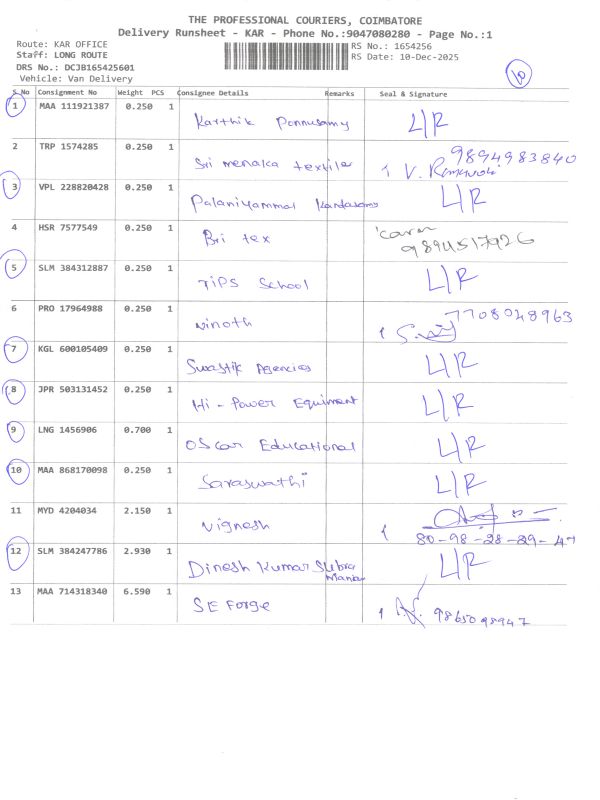 THE PROFESSIONAL COURIERS, COIMBATORE
Delivery Runsheet - KAR - Phone No.:9047080280 - Page No.:1
Route: KAR OFFICE RS No.: 1654256
Staff: LONG ROUTE RS Date: 10-Dec-2025
DRS No.: DCJB165425601
Vehicle: Van Delivery
10
S.No Consignment No Weight PCS Consignee Details Remarks Seal & Signature
1 MAA 111921387 0.250 1 Karthik Ponnusamy L/R
2 TRP 1574285 0.250 1 Sri menaka textile 9894983840
3 VPL 228820428 0.250 1 Palaniyammal Kandasamy L/R
4 HSR 7577549 0.250 1 Bri tex 9894517926
5 SLM 384312887 0.250 1 TIPS School L/R
6 PRO 17964988 0.250 1 Vinoth 7708048963
7 KGL 600105409 0.250 1 Swastik Agencies L/R
8 JPR 503131452 0.250 1 Hi-Power Equiment L/R
9 LNG 1456906 0.700 1 OScar Educational L/R
10 MAA 868170098 0.250 1 Saraswathi L/R
11 MYD 4204034 2.150 1 Vignesh 80-98-28-29-47
12 SLM 384247786 2.930 1 Dinesh Kumar Subra L/R
Manian
13 MAA 714318340 6.590 1 SE Forge 9865098947